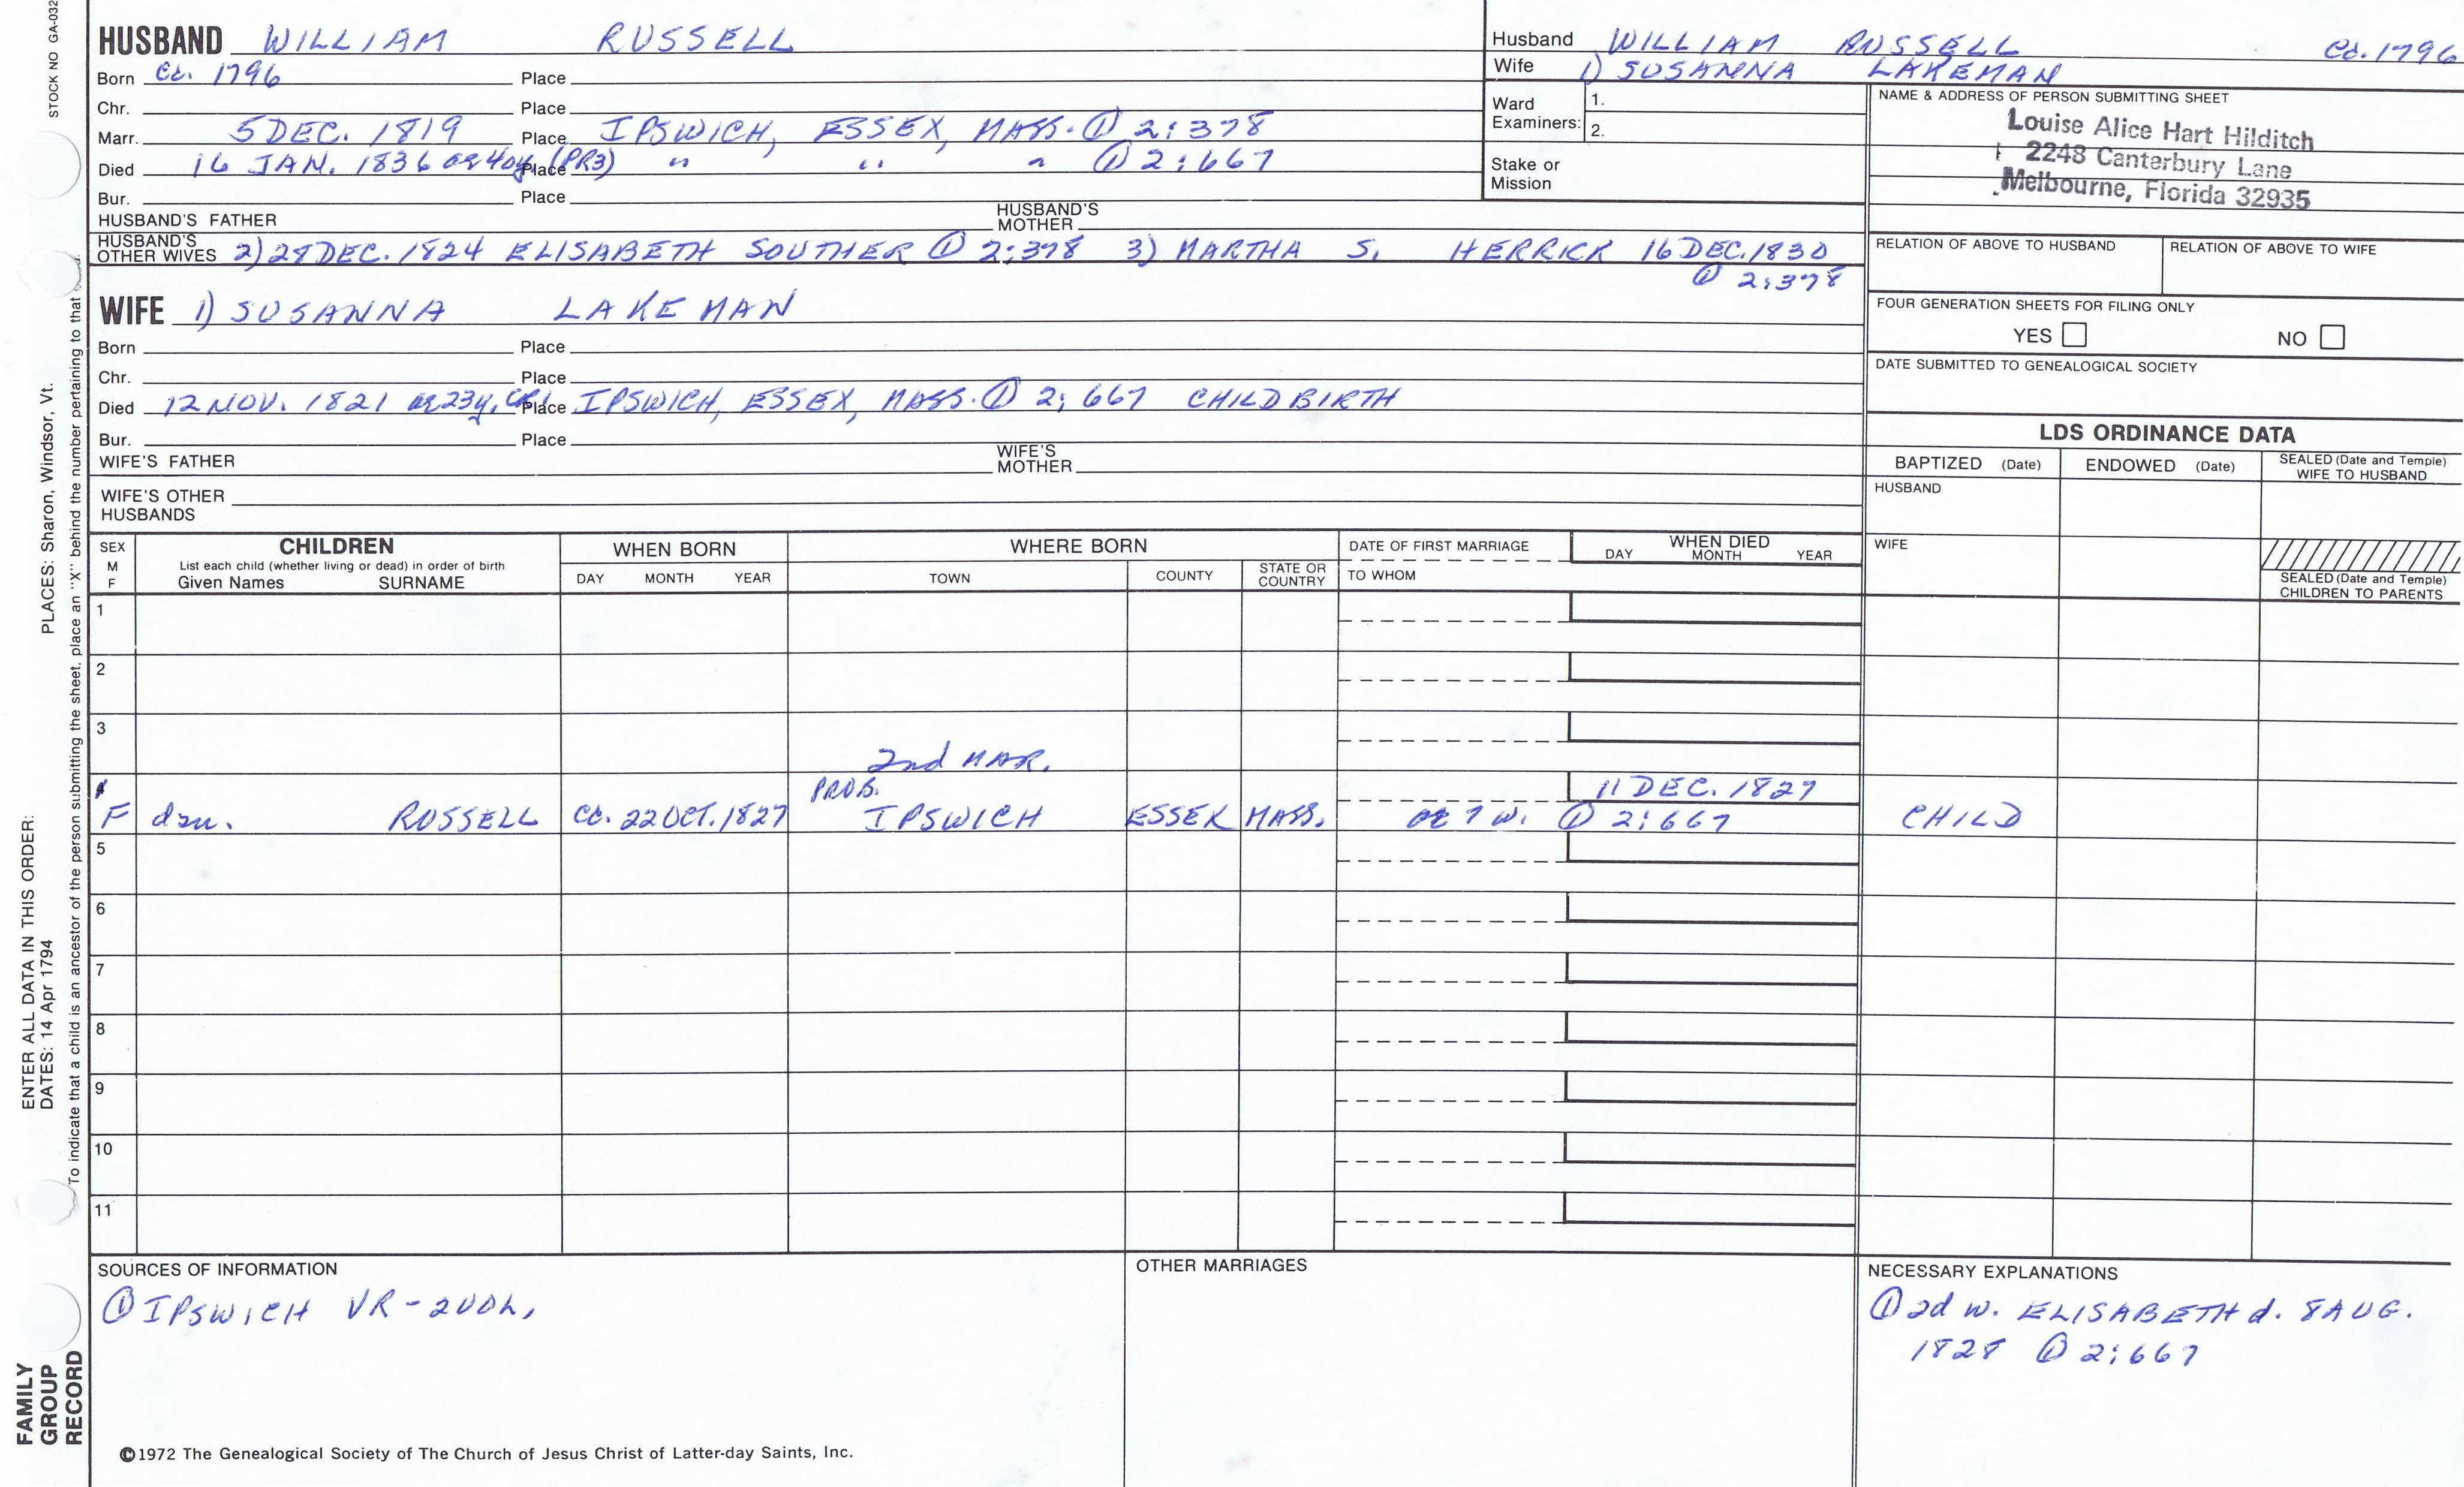 STOCK NO GA-032
HUSBAND WILLIAM RUSSELL
Born Ca. 1796 Place
Chr. Place
Marr. 5 DEC. 1819 Place IPSWICH, ESSEX, MASS. ① 2:378
Died 16 JAN. 1836 ae 40y (PR3) Place " " " ① 2:667
Bur. Place
HUSBAND'S FATHER HUSBAND'S MOTHER
HUSBAND'S OTHER WIVES 2) 28 DEC. 1824 ELISABETH SOUTHER ① 2:378 3) MARTHA S. HERRICK 16 DEC. 1830
① 2:378
WIFE 1) SUSANNA LAKEMAN
Born Place
Chr. Place
Died 12 NOV. 1821 ae 23y, Place IPSWICH, ESSEX, MASS. ① 2:667 CHILDBIRTH
Bur. Place
WIFE'S FATHER WIFE'S MOTHER
WIFE'S OTHER
HUSBANDS
Husband WILLIAM RUSSELL Ca. 1796
Wife 1) SUSANNA LAKEMAN
Ward Examiners: 1.
2.
Stake or
Mission
NAME & ADDRESS OF PERSON SUBMITTING SHEET
Louise Alice Hart Hilditch
2248 Canterbury Lane
Melbourne, Florida 32935
RELATION OF ABOVE TO HUSBAND RELATION OF ABOVE TO WIFE
FOUR GENERATION SHEETS FOR FILING ONLY
YES NO
DATE SUBMITTED TO GENEALOGICAL SOCIETY
LDS ORDINANCE DATA
BAPTIZED (Date) ENDOWED (Date) SEALED (Date and Temple) WIFE TO HUSBAND
HUSBAND
WIFE
SEALED (Date and Temple)
CHILDREN TO PARENTS
SEX M F
CHILDREN
List each child (whether living or dead) in order of birth
Given Names SURNAME
WHEN BORN
DAY MONTH YEAR
WHERE BORN
TOWN COUNTY STATE OR COUNTRY
DATE OF FIRST MARRIAGE
TO WHOM
WHEN DIED
DAY MONTH YEAR
1
2
3
2nd MAR.
PROB. 11 DEC. 1827
F dau. RUSSELL Ca. 22 OCT. 1827 IPSWICH ESSEX MASS. ae 7 w. ① 2:667 CHILD
5
6
7
8
9
10
11
SOURCES OF INFORMATION
① IPSWICH VR - 2 VOL,
OTHER MARRIAGES
NECESSARY EXPLANATIONS
① 2d w. ELISABETH d. 8 AUG.
1828 ① 2:667
©1972 The Genealogical Society of The Church of Jesus Christ of Latter-day Saints, Inc.
FAMILY
GROUP
RECORD
ENTER ALL DATA IN THIS ORDER:
DATES: 14 Apr 1794 PLACES: Sharon, Windsor, Vt.
To indicate that a child is an ancestor of the person submitting the sheet, place an "X" behind the number pertaining to that